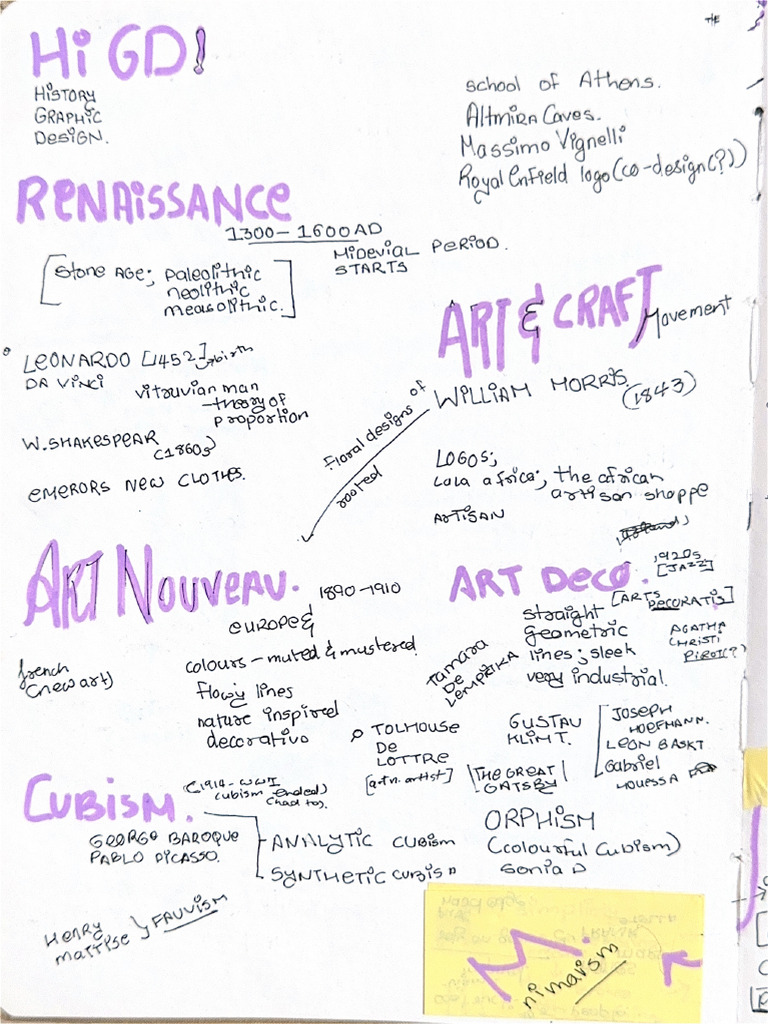 THE
Hi GD!
HISTORY
GRAPHIC
DESIGN.
school of Athens.
Altmira Caves.
Massimo Vignelli
Royal Enfield logo (co-design(?))
RENAISSANCE
1300 - 1600 AD
MiDEViAL PERIOD.
STARTS
[Stone AGE; paleolithic
neolithic
measolithic.]
ART & CRAFT
Movement
LEONARDO [1452] → birth
DA VINCI
vitruvian man
- theory of
proportion
WILLIAM MORRIS.
(1843)
floral designs of
rooted
W. SHAKESPEAR
(1860s)
EMERORS NEW CLOTHES.
LOGOS;
Lola africa; the african
artisan shoppe
ARTISAN
ART NOUVEAU.
1890-1910
EUROPE &
french
(new art)
colours - muted & mustered
flowy lines
nature inspired
decorativo
ART DECO.
1920s
[JAZZ]
[ARTS DECORATIS]
straight
geometric
lines; sleek
very industrial.
AGATHA
CHRISTI
PIROT(?)
TAMARA
DE
LEMPRIKA
TOLHOUSE
DE
LOTTRE
[a.t.n. artist]
GUSTAV
KLIMT.
|THE GREAT
GATSBY|
JOSEPH
HOFFMANN.
LEON BASKT
Gabriel
HOUESSA
CUBISM.
(1914 - WWI
cubism ended)
(had to).
GEORGE BAROQUE
PABLO PICASSO.
ANALYTIC CUBISM
SYNTHETIC CUBISM
ORPHISM
(colourful Cubism)
Sonia D
HENRY
MATTISE } FAUVISM
Mi
nimaism